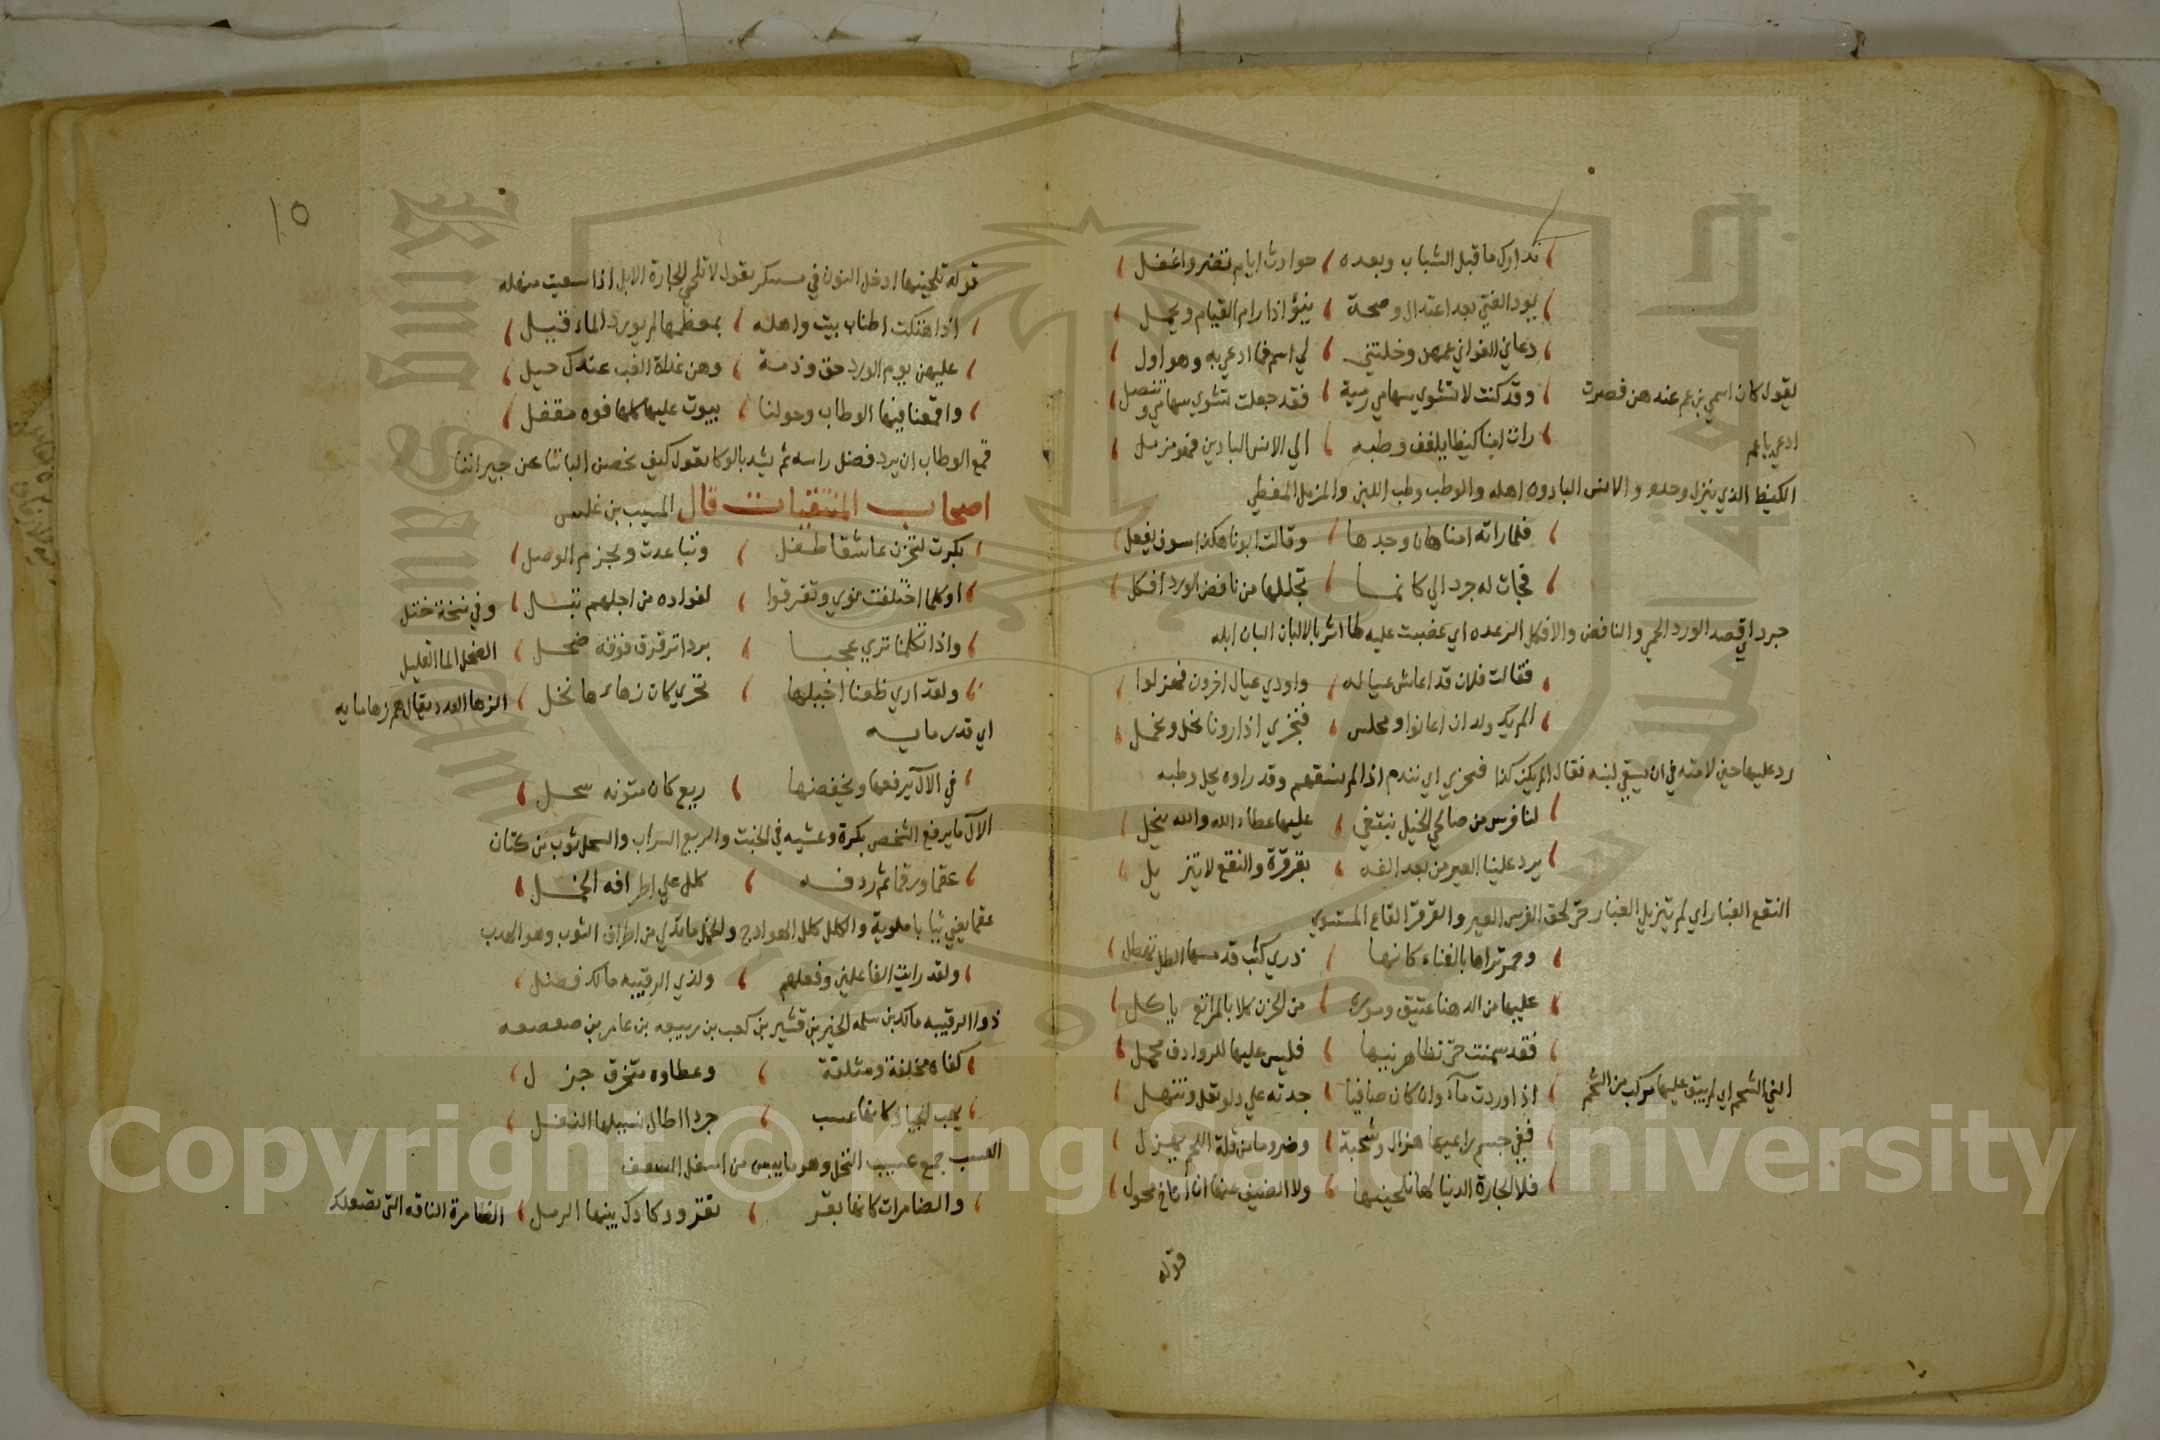 تدارك ما قبل الشباب وبعده حوادث ايام تضر واغفل
يود الفتي بعد اعتدال وصحة ينؤ اذا رام القيام ويحمل
دعاني الغواني عمهن وخلتني لي اسم فما ادعي به وهو اول
يقول كان اسمي بن عم عندهن فصرت
ادعي يا عم
وقد كنت لا تشوي سهامي رمية فقد جعلت تشوي سهامي وتنصل
رات امنا كنيظا يلفف وطبه الي الانس البادين فهو مزمل
الكنيظ الذي ينزل وحده والانس البادون اهله والوطب وطب اللبن والمزمل المغطي
فلما راته امنا هان وجدها وقالت ابونا هكذا سوف يفعل
فجات له جرد الي كانما تجللها من نافض الورد افكل
جرد اي قصد الورد الحمي والنافض والافكل الرعده اي غضبت عليه لما اثرنا بالالبان البان ابله
فقالت فلان قد اعاش عياله واودي عيال اخرون فهزلوا
الم يك ولدان اعانوا ومجلس فنخزي اذا راونا نحل ونحمل
رد عليها حين لامته في ان يسقي لبنه فقال الم يكن كذا فنخزي اي نندم اذا لم نسقهم وقد راوه يحل وطبه
لنا فرس من صالحي الخيل نبتغي عليها عطاء الله والله ينحل
يرد علينا العير من بعد الفه بقرقرة والنقع لا يتزيل
النقع الغبار اي لم يتزيل الغبار حتي لحق الفرس العير والقرقر القاع المستوي
وحمر تراها بالفناء كانها ذري كثب قد مسها الطل تهطل
عليها من الدهنا عتيق ومورة من الحزن كلا بالمراتع ياكل
فقد سمنت حتي تظاهر نيها فليس عليها للروادف محمل
الني الشحم اي لم يبق عليها مركب من الشحم
اذا وردت مآء وان كان صافيا حدته علي دلو تعل وتنهل
ففي جسم راعيها هزال وشحبة وضر وما من قلة اللحم يهزل
فلا الجارة الدنيا لها تلحينها ولا الضيف عنها ان اناخ محول
قوله
10
قوله تلحينها ادخل النون في يقول لا تلحي الجارة الابل اذا سعيت
اذا هتكت اطناب بيت واهله بمعظمها لم يورد الماء قيل
عليهن يوم الورد حق وذمة وهن غداة الغب عندك حيل
واقمعنا فيها الوطاب وحولنا بيوت عليها كلها فوه مقفل
قمع الوطاب ان يرد فضل راسه ثم يشد بالوكا يقول كيف نخص الباننا عن جيراننا
اصحاب المنتقيات قال المسيب بن علس
بكرت لتحزن عاشقا طفل وتباعدت وتجزم الوصل
او كلما اختلفت نوي وتفرقوا لفواده من اجلهم تبل وفي نسخة ختل
واذا تكلمنا تري عجبا بردا ترقرق فوقه ضحل الضحل الماء القليل
ولقد اري ظعنا اخيلها تخزي كان زهاءها نخل الزها العدد يقال هم زها مايه
اي قدر مايه
في الآل يرفعها ويخفضها ريع كان متونه سحل
الآل ما يرفع الشخص بكرة وعشيه في الخبت والريع السراب والسحل ثوب من كتان
عقما ورقما ثم ردفه كلل علي اطرافه الخمل
عقما يعني ثيابا ملوية والكلل كلل الهوادج والخمل ما تدلي من اطراف الثوب وهو الهدب
ولقد رايت الفاعلين وفعلهم ولذي الرقيبه مالك فضل
ذوا الرقيبه مالك بن سلمه الخير بن قشير بن كعب بن ربيعه بن عامر بن صعصعه
كفاه مخلفة ومتلفة وعطاوه متخرق جزل
يهب الجياد كانها عسب جردا اطال نسيلها النقل
العسب جمع عسيب النخل وهو ما يبس من اسفل السعف
والضامرات كانها بقر تقرو دكادك بينها الرمل الضامرة الناقه التي